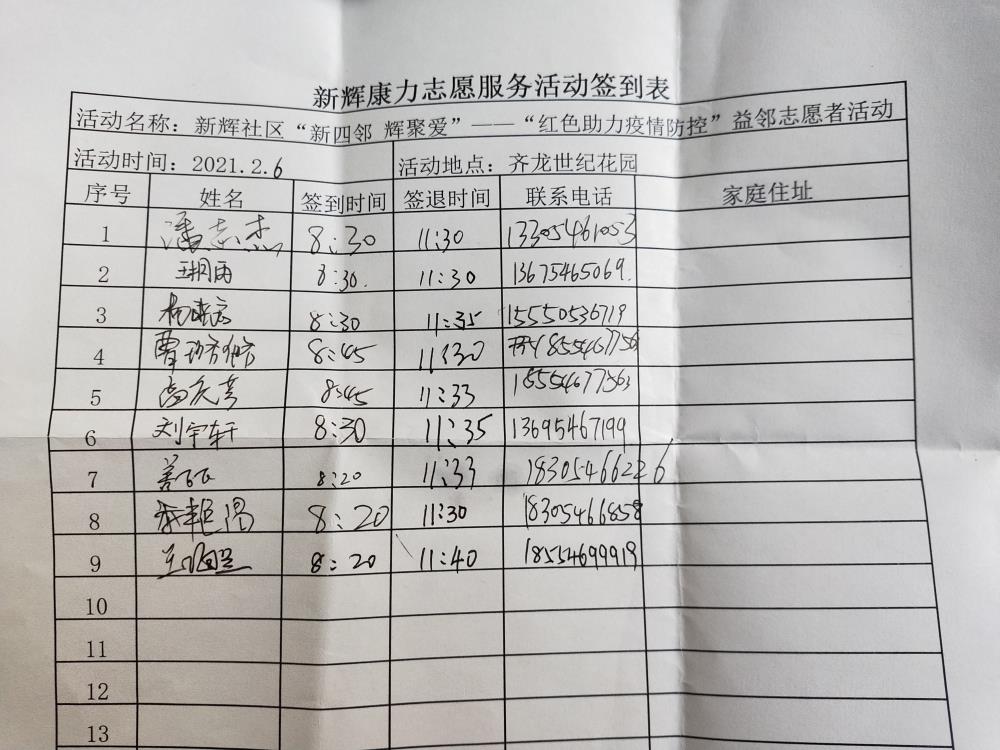 新辉康力志愿服务活动签到表
活动名称：新辉社区“新四邻 辉聚爱”——“红色助力疫情防控”益邻志愿者活动
活动时间：2021.2.6 活动地点：齐龙世纪花园
序号 姓名 签到时间 签退时间 联系电话 家庭住址
1 潘志杰 8:30 11:30 13305461053
2 8:30. 11:30 13675465069.
3 8:30 11:35 15550536719
4 8:45 11:30
5 8:45 11:33 18554677563
6 刘宇轩 8:30 11:35 13695467199
7 8:20 11:33 18305466226
8 8:20 11:30 18305466858
9 8:20 11:40 18554699919
10
11
12
13